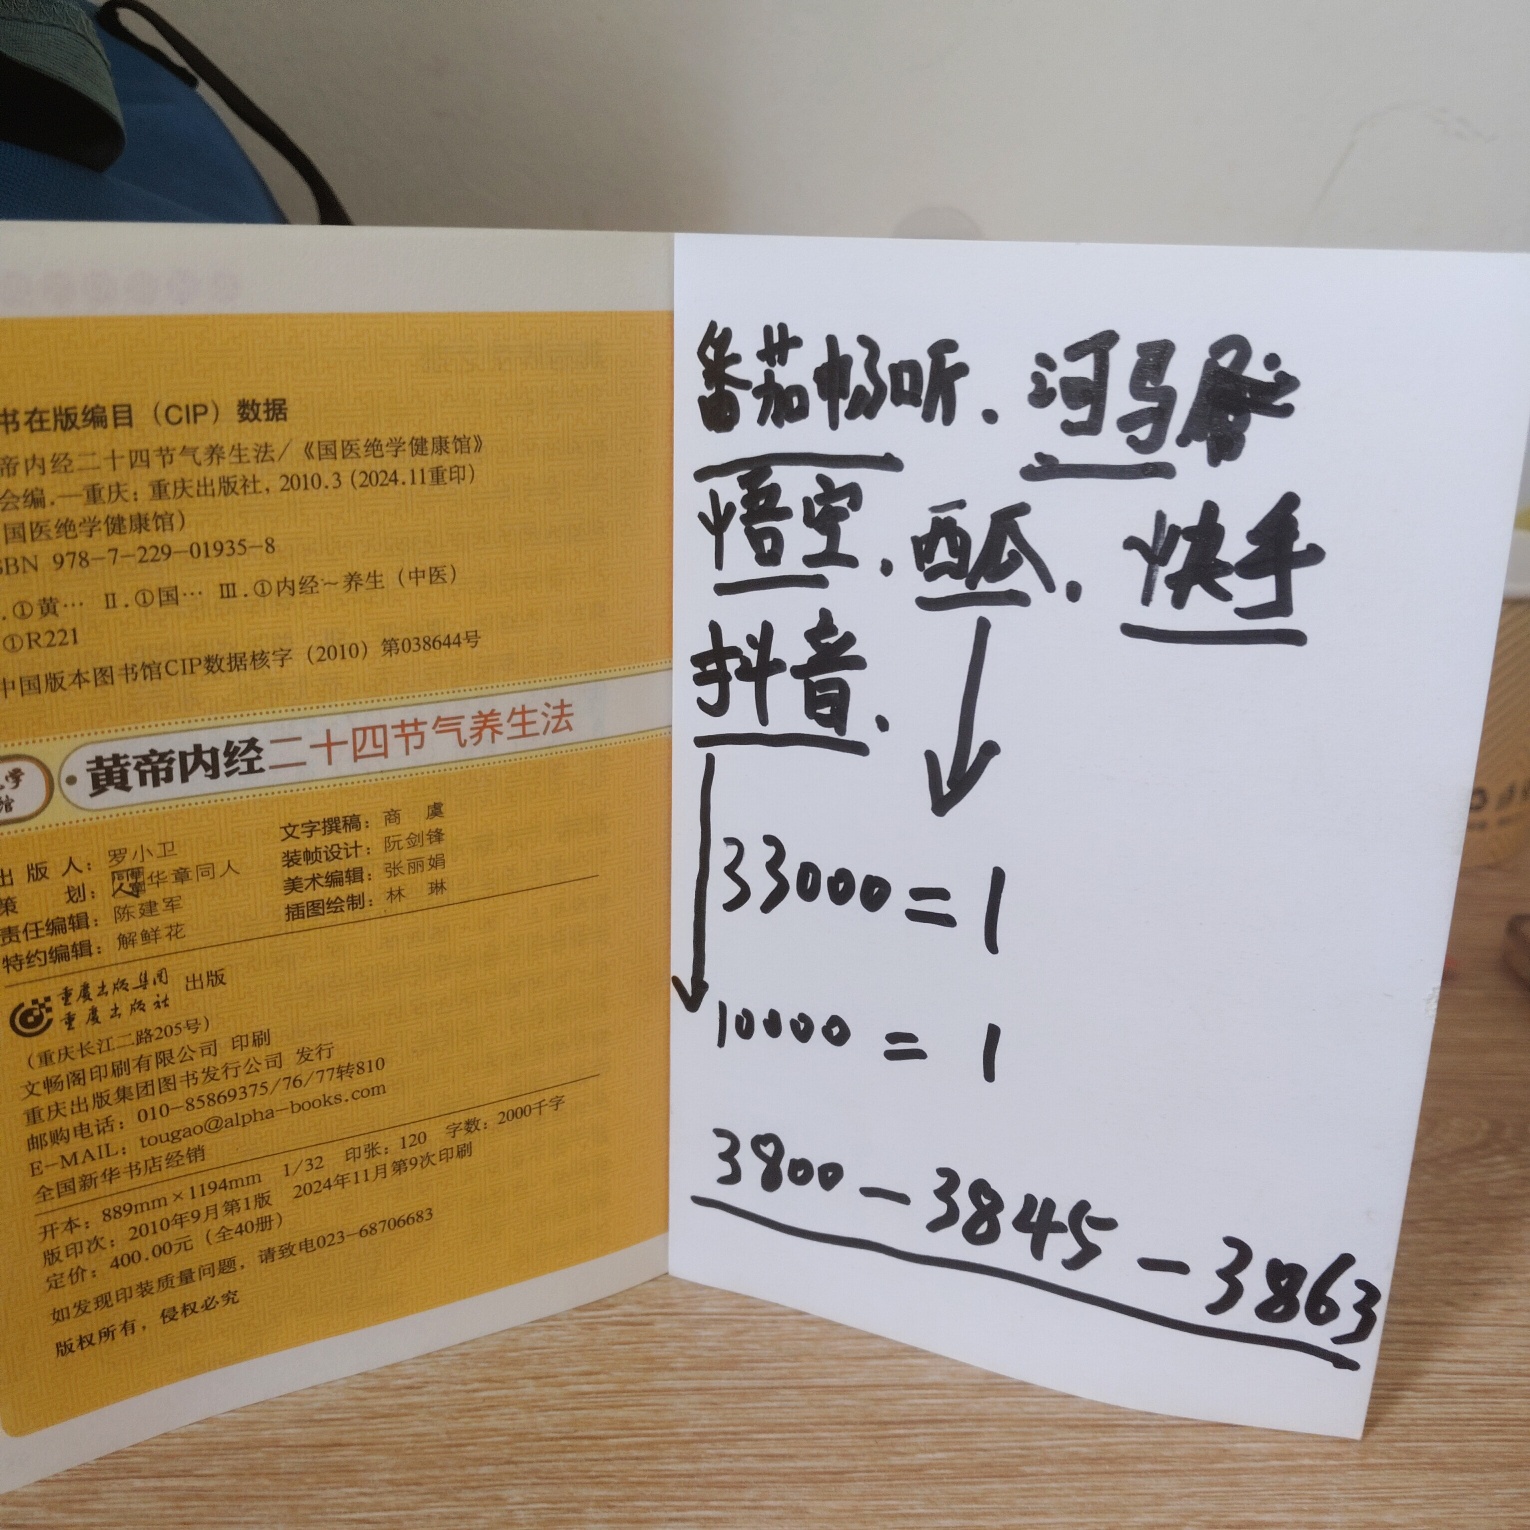 书在版编目（CIP）数据
帝内经二十四节气养生法/《国医绝学健康馆》
会编.—重庆：重庆出版社，2010.3（2024.11重印）
国医绝学健康馆）
SBN 978-7-229-01935-8
.①黄… Ⅱ.①国… Ⅲ.①内经～养生（中医）
①R221
中国版本图书馆CIP数据核字（2010）第038644号
黄帝内经二十四节气养生法
出版人：罗小卫
策划：华章同人
责任编辑：陈建军
特约编辑：解鲜花
文字撰稿：商虞
装帧设计：阮剑锋
美术编辑：张丽娟
插图绘制：林琳
重庆出版集团
重庆出版社 出版
（重庆长江二路205号）
文畅阁印刷有限公司 印刷
重庆出版集团图书发行公司 发行
邮购电话：010-85869375/76/77转810
E-MAIL：tougao@alpha-books.com
全国新华书店经销
开本：889mm×1194mm 1/32 印张：120 字数：2000千字
版印次：2010年9月第1版 2024年11月第9次印刷
定价：400.00元（全40册）
如发现印装质量问题，请致电023-68706683
版权所有，侵权必究
番茄畅听.河马
悟空.西瓜.快手
抖音.
33000=1
10000=1
3800-3845-3863